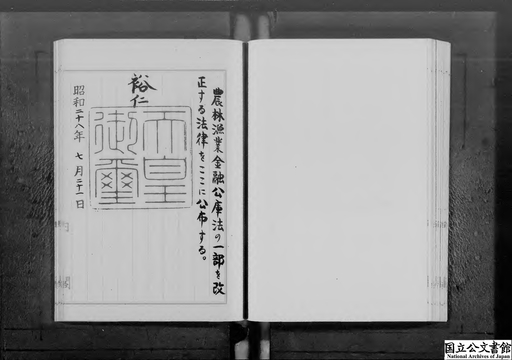 農林漁業金融公庫法の一部を改
正する法律をここに公布する。
裕仁
天皇
御璽
昭和二十八年七月二十一日
国立公文書館
National Archives of Japan